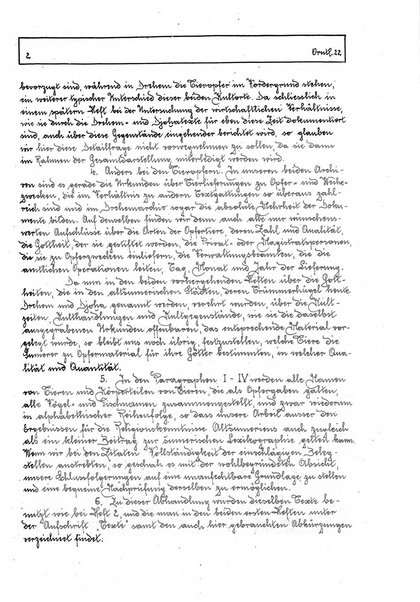 2 Orntl.22
bevorzugt sind, während in Drehem die Tieropfer im Vordergrund stehen,
ein weiterer typischer Unterschied dieser beiden Kultorte. Da schliesslich in
einem spätern Heft bei der Untersuchung der wirtschaftlichen Verhältnisse,
wie sie durch die Drehem- und Djohatexte für eben diese Zeit dokumentiert
sind, auch über diese Gegenstände eingehender berichtet wird, so glauben
wir hier diese Detailfrage nicht vorwegnehmen zu sollen, da sie dann
im Rahmen der Gesamtdarstellung miterledigt werden wird.
4. Anders bei den Tieropfern. In unseren beiden Archi-
ven sind es gerade die Urkunden über Tierlieferungen zu Opfer- und Weihe-
zwecken, die im Verhältnis zu andern Textgattungen so überaus zahl-
reich sind und im Drehemarchiv sogar die absolute Mehrheit der Doku-
mente bilden. Auf denselben finden wir denn auch alle nur wünschens-
werten Aufschlüsse über die Arten der Opfertiere, deren Zahl und Qualität,
die Gottheit, der sie gestiftet werden, die Privat- oder Magistratspersonen,
die sie zu Opferzwecken einliefern, die Verwaltungsbeamten, die die
amtlichen Operationen leiten, Tag, Monat und Jahr der Lieferung.
Da nun in den beiden vorhergehenden Heften über die Gott-
heiten, die in den altsumerischen Städten, deren Trümmerhügel heute
Drehem und Djoha genannt werden, verehrt wurden, über die Kult-
zeiten, Kulthandlungen und Kultgegenstände, wie sie die daselbst
ausgegrabenen Urkunden offenbaren, das entsprechende Material vor-
gelegt wurde, so bleibt uns noch übrig, festzustellen, welche Tiere die
Sumerer zu Opfermaterial für ihre Götter bestimmten, in welcher Qua-
lität und Quantität.
5. In den Paragraphen I - IV werden alle Namen
von Tieren und Körperteilen von Tieren, die als Opfergaben galten,
alle Vögel- und Fischnamen zusammengestellt, und zwar wiederum
in alphabetischer Reihenfolge, so dass unsere Arbeit ausser den
Ergebnissen für die Religionskenntnisse Altsumeriens auch zugleich
als ein kleiner Beitrag zur sumerischen Lexikographie gelten kann.
Wenn wir bei den Zitaten Vollständigkeit der einschlägigen Beleg-
stellen anstrebten, so geschah es mit der wohlbegründeten Absicht,
unsere Schlussfolgerungen auf eine unanfechtbare Grundlage zu stellen
und eine bequeme Nachprüfung derselben zu ermöglichen.
6. Zu dieser Abhandlung wurden dieselben Texte be-
nutzt wie bei Heft 2, und die man in den beiden ersten Heften unter
der Aufschrift „Texte" samt den auch hier gebrauchten Abkürzungen
verzeichnet findet.